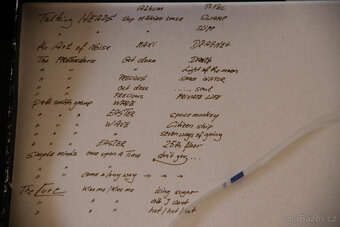 ALBUM TITEL
Talking HEADS Stop Making sense SWAMP
" " " SLIPP
An Art of Noise MAXI DRAGNET
The PRETENDERS Get close DANCE
" " " Light of the moon
" " PRECIOUS space INVADER
" " Get close ..... soul
" " PRECIOUS PRIVATE LIFE
Patti smith group WAVE
" " " EASTER space monkey
" " " WAVE Citizen ship
" " " " seven ways of going
" " " EASTER 25th floor
Simple minds once upon a Time don't you...
" " came a long way → → →
The Cure Kiss me / Kiss me icing sugar
" " " all I want
" " " hot/hot/hot
Bazos.cz